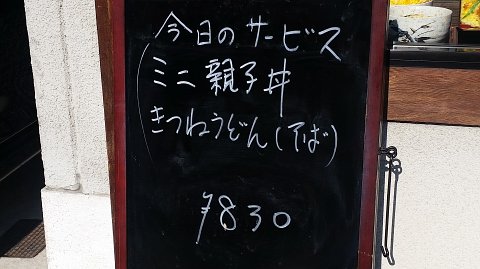 今日のサービス
ミニ親子丼
きつねうどん(そば)
¥830